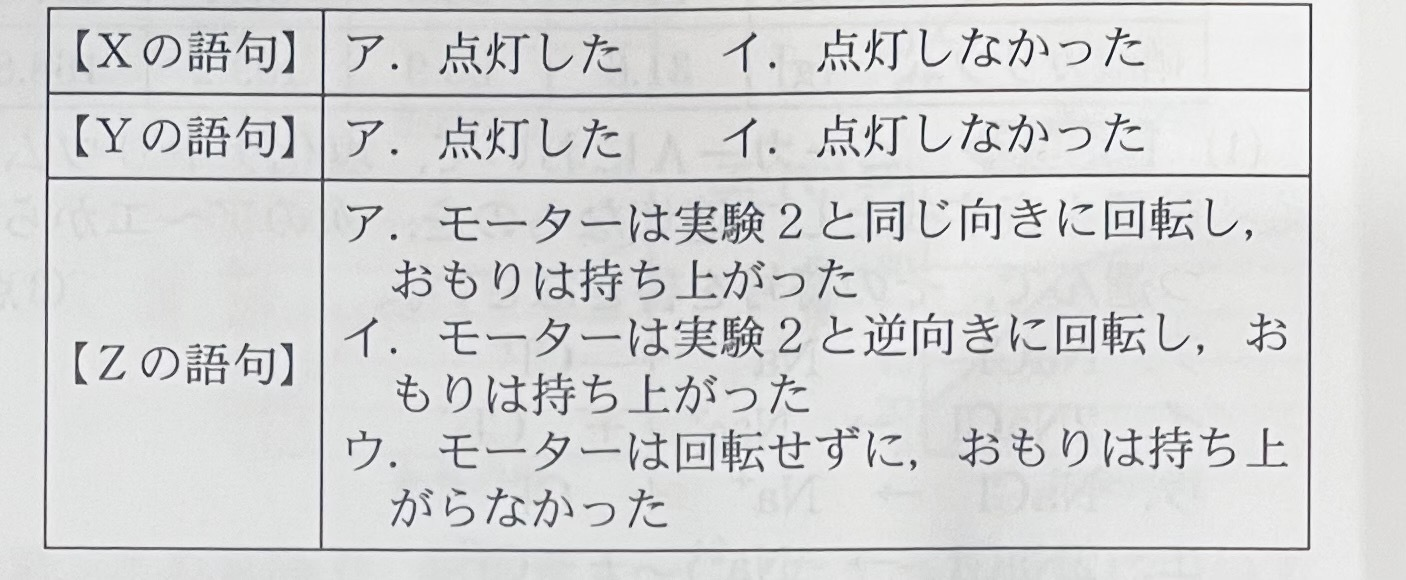 【Xの語句】 ア．点灯した　イ．点灯しなかった
【Yの語句】 ア．点灯した　イ．点灯しなかった
【Zの語句】
ア．モーターは実験２と同じ向きに回転し，
おもりは持ち上がった
イ．モーターは実験２と逆向きに回転し，お
もりは持ち上がった
ウ．モーターは回転せずに，おもりは持ち上
がらなかった